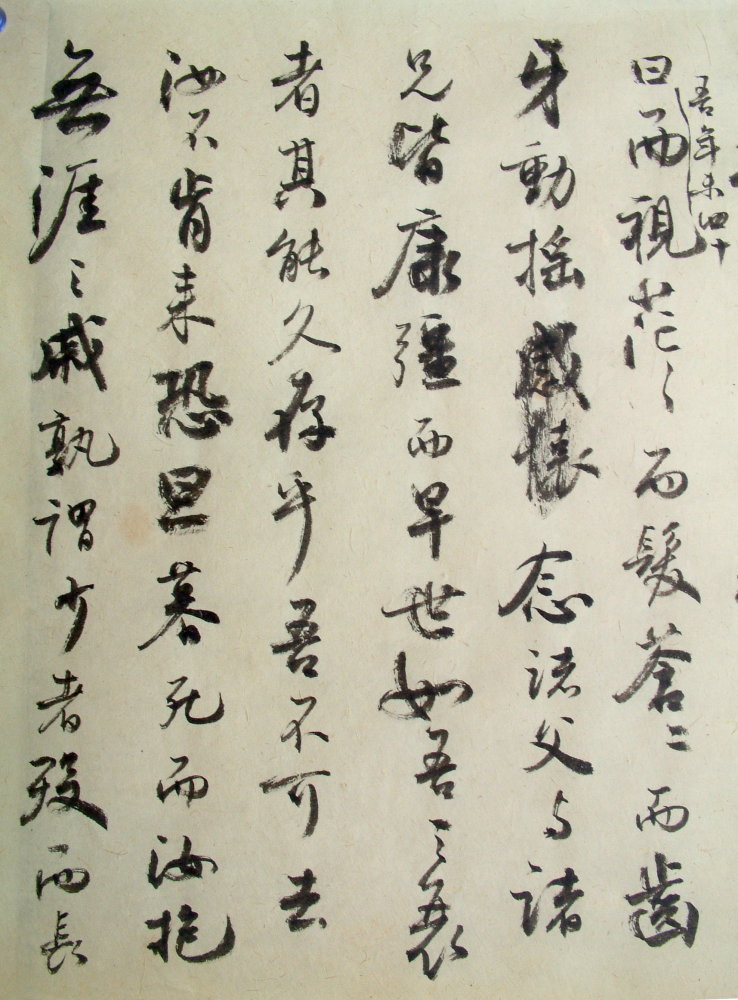 曰而視茫々而髮蒼々而齒
吾年未四十
牙動搖念諸父与諸
兄皆康彊而早世如吾之衰
者其能久存乎吾不可去
汝不肯来恐旦暮死而汝抱
無涯之戚孰謂少者歿而長